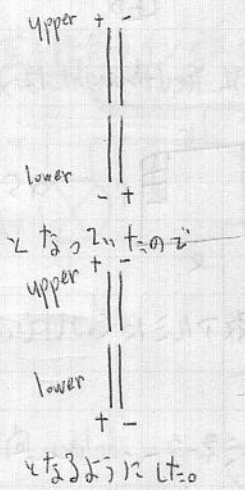 upper + -
lower
- +
となっていたので
+ -
upper
lower
+ -
となるようにした。